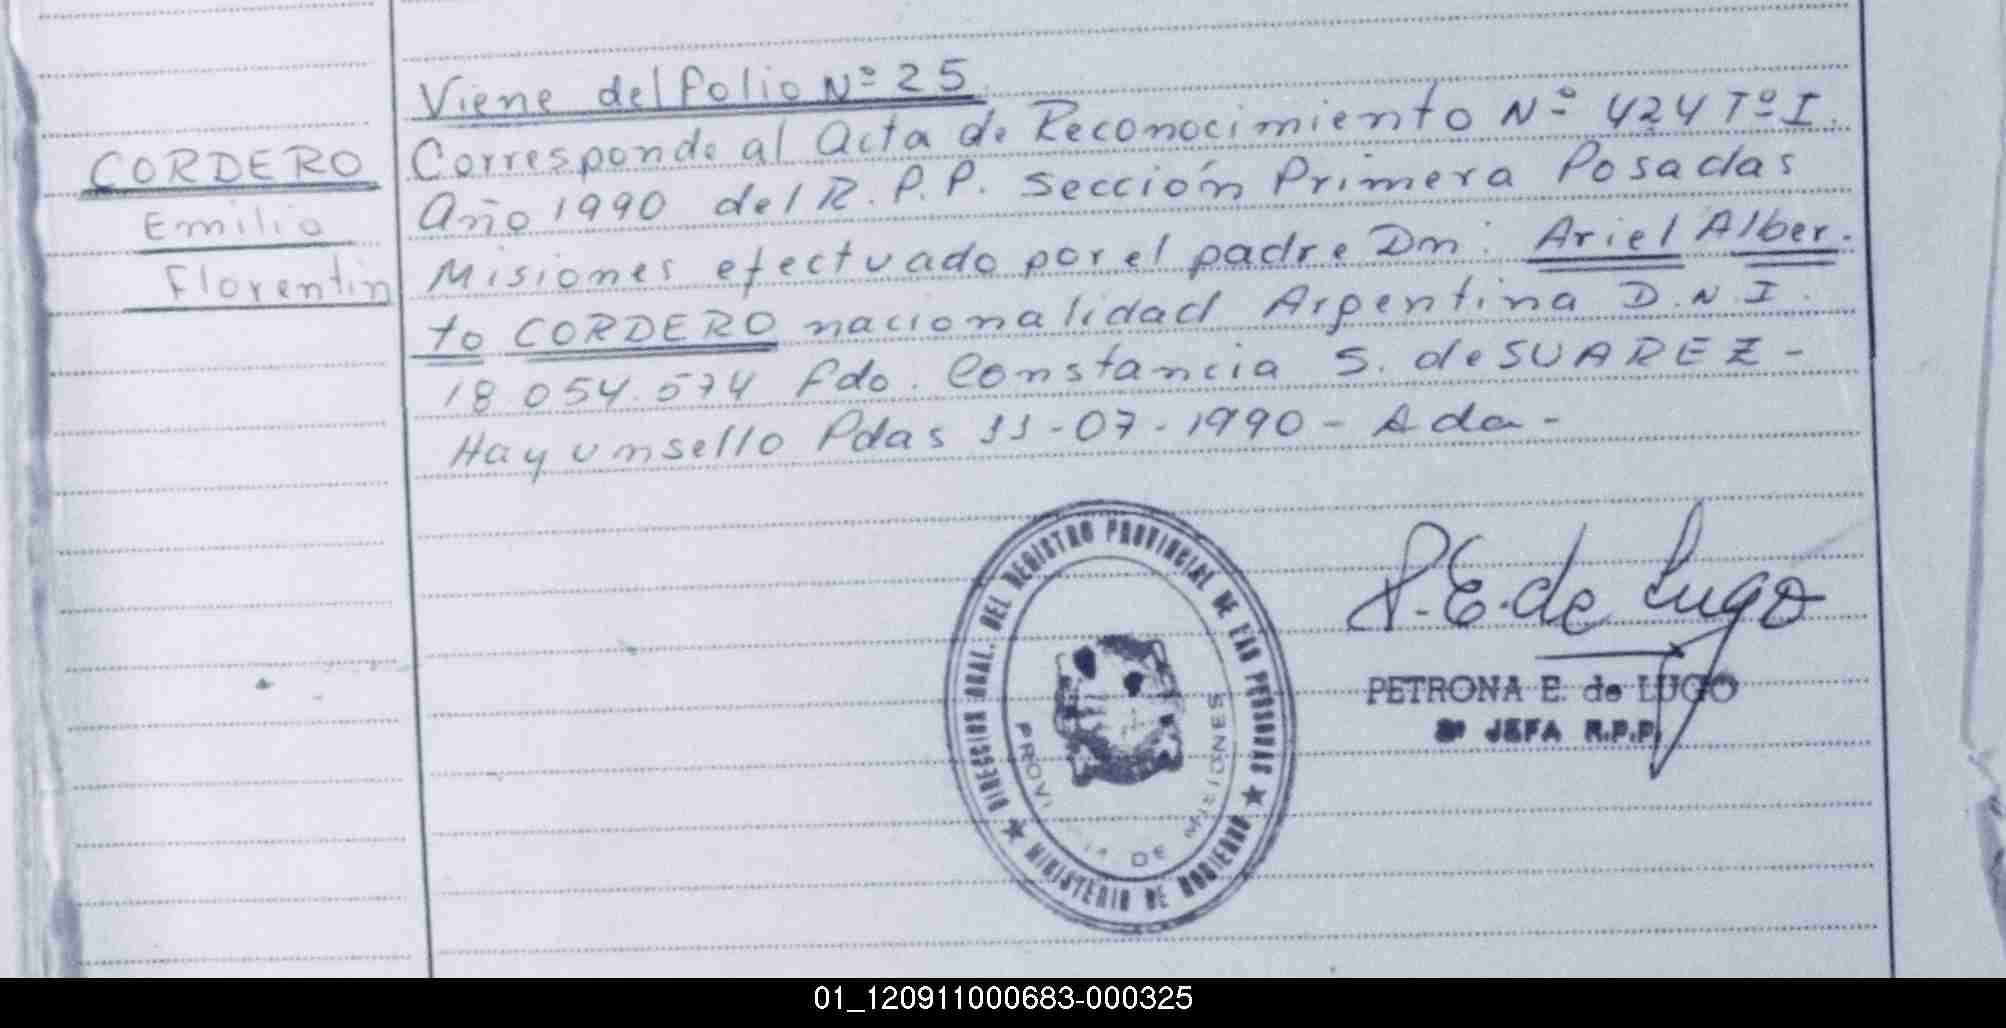 Viene del folio Nº 25
CORDERO
Emilio
Florentin
Corresponde al Acta de Reconocimiento Nº 424 Tº I.
Año 1990 del R.P.P. Sección Primera Posadas
Misiones efectuado por el padre Dn: Ariel Alber-
to CORDERO nacionalidad Argentina D.N.I.
18.054.574 fdo. Constancia S. de SUAREZ-
Hay un sello Pdas 11-07-1990 - Ada-
DIRECCION GRAL. DEL REGISTRO PROVINCIAL DE LAS PERSONAS
★ MINISTERIO DE GOBIERNO ★
PROVINCIA DE MISIONES
P.E. de Lugo
PETRONA E. de LUGO
JEFA R.P.P.
01_120911000683-000325